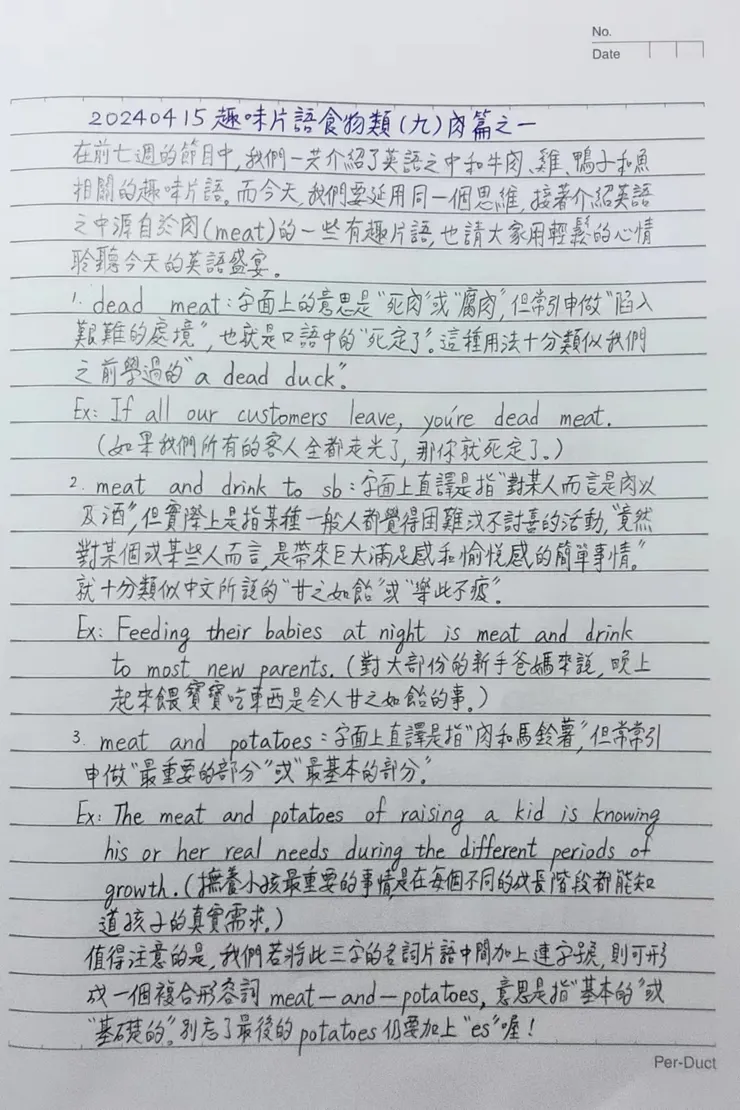 No.
Date
20240415趣味片語食物類(九)肉篇之一
在前七週的節目中,我們一共介紹了英語之中和牛肉、雞、鴨子和魚
相關的趣味片語。而今天,我們要延用同一個思維,接著介紹英語
之中源自於肉(meat)的一些有趣片語,也請大家用輕鬆的心情
聆聽今天的英語盛宴。
1. dead meat:字面上的意思是"死肉"或"腐肉",但常引申做"陷入
艱難的處境",也就是口語中的"死定了"。這種用法十分類似我們
之前學過的"a dead duck"。
Ex: If all our customers leave, you're dead meat.
(如果我們所有的客人全都走光了,那你就死定了。)
2. meat and drink to sb:字面上直譯是指"對某人而言是肉以
及酒",但實際上是指某種一般人都覺得困難或不討喜的活動,"竟然
對某個或某些人而言,是帶來巨大滿足感和愉悅感的簡單事情。"
就十分類似中文所說的"甘之如飴"或"樂此不疲"。
Ex: Feeding their babies at night is meat and drink
to most new parents.(對大部份的新手爸媽來說,晚上
起來餵寶寶吃東西是令人甘之如飴的事。)
3. meat and potatoes:字面上直譯是指"肉和馬鈴薯",但常常引
申做"最重要的部分"或"最基本的部分。"
Ex: The meat and potatoes of raising a kid is knowing
his or her real needs during the different periods of
growth.(撫養小孩最重要的事情是在每個不同的成長階段都能知
道孩子的真實需求。)
值得注意的是,我們若將此三字的名詞片語中間加上連字號,則可形
成一個複合形容詞 meat-and-potatoes,意思是指"基本的"或
"基礎的"。別忘了最後的potatoes仍要加上"es"喔!
Per-Duct